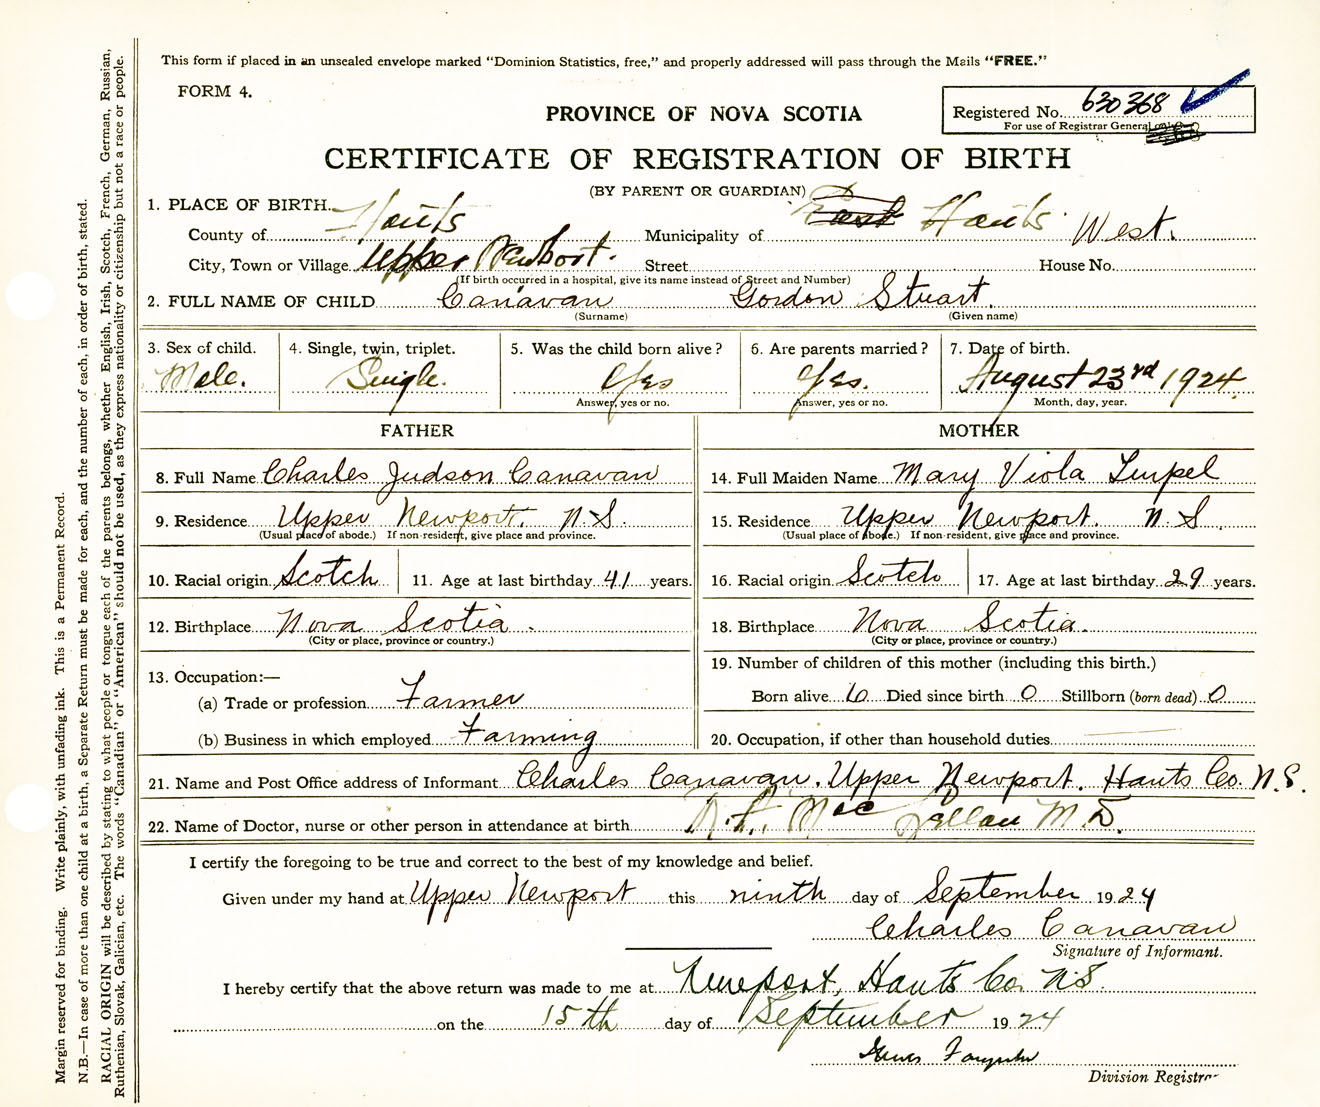 This form if placed in an unsealed envelope marked "Dominion Statistics, free," and properly addressed will pass through the Mails "FREE."
FORM 4.
PROVINCE OF NOVA SCOTIA
Registered No. 630368
For use of Registrar General
CERTIFICATE OF REGISTRATION OF BIRTH
(BY PARENT OR GUARDIAN)
1. PLACE OF BIRTH.
County of Hants Municipality of East Hants West.
City, Town or Village Upper Newport. Street House No.
(If birth occurred in a hospital, give its name instead of Street and Number)
2. FULL NAME OF CHILD Canavan Gordon Stuart.
(Surname) (Given name)
3. Sex of child. 4. Single, twin, triplet. 5. Was the child born alive? 6. Are parents married? 7. Date of birth.
Male. Single. Yes Yes. August 23rd 1924
Answer, yes or no. Answer, yes or no. Month, day, year.
FATHER MOTHER
8. Full Name Charles Judson Canavan 14. Full Maiden Name Mary Viola
9. Residence Upper Newport. N.S. 15. Residence Upper Newport. N.S.
(Usual place of abode.) If non-resident, give place and province. (Usual place of abode.) If non-resident, give place and province.
10. Racial origin Scotch 11. Age at last birthday 41 years. 16. Racial origin Scotch 17. Age at last birthday 29 years.
12. Birthplace Nova Scotia. 18. Birthplace Nova Scotia.
(City or place, province or country.) (City or place, province or country.)
13. Occupation:— 19. Number of children of this mother (including this birth.)
(a) Trade or profession Farmer Born alive 6 Died since birth 0 Stillborn (born dead) 0
(b) Business in which employed Farming 20. Occupation, if other than household duties
21. Name and Post Office address of Informant Charles Canavan. Upper Newport. Hants Co. N.S.
22. Name of Doctor, nurse or other person in attendance at birth MacLellan M.D.
I certify the foregoing to be true and correct to the best of my knowledge and belief.
Given under my hand at Upper Newport this ninth day of September 1924
Charles Canavan
Signature of Informant.
I hereby certify that the above return was made to me at Newport, Hants Co. N.S.
on the 15th day of September 1924
Division Registrar
Margin reserved for binding. Write plainly, with unfading ink. This is a Permanent Record.
N.B.—In case of more than one child at a birth, a Separate Return must be made for each, and the number of each, in order of birth, stated.
RACIAL ORIGIN will be described by stating to what people or tongue each of the parents belongs, whether English, Irish, Scotch, French, German, Russian,
Ruthenian, Slovak, Galician, etc. The words "Canadian" or "American" should not be used, as they express nationality or citizenship but not a race or people.